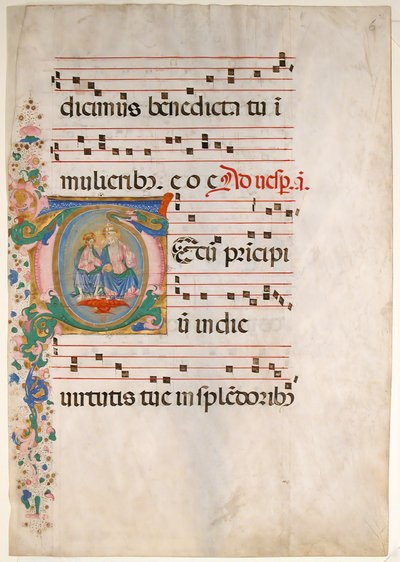 6
dicimus benedicta tu ĩ
mulieribꝫ. e o e Ad uesp̃. a͂.
TEcũ prĩcipi
ũ in die
uirtutis tue in splẽdoribꝫ